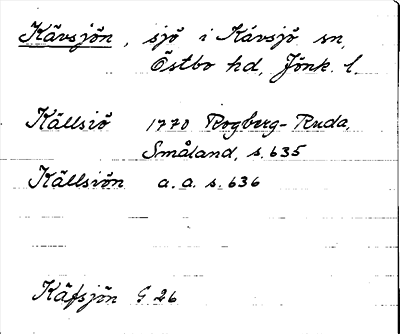 Kävsjön, sjö i Kävsjö sn,
Östbo hd, Jönk. l.
Källsiö 1770 Rogberg-Ruda,
Småland, s. 635
Källsiön a.a. s. 636
Käfsjön G 26